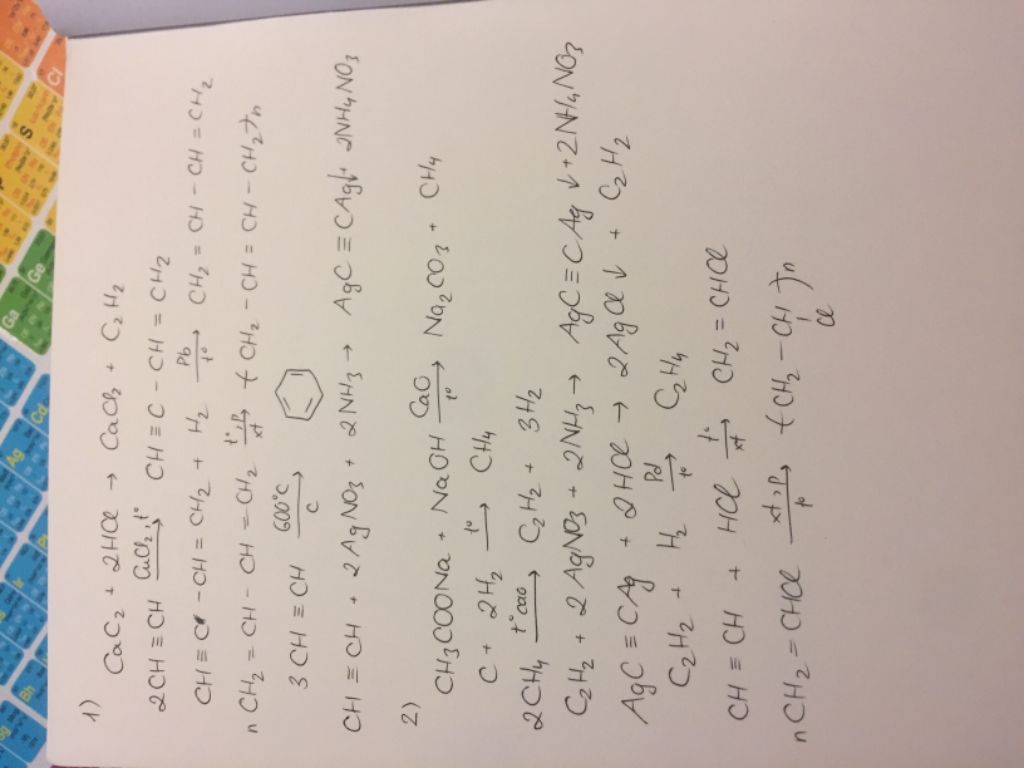 1)
CaC2 + 2HCl → CaCl2 + C2H2
2CH ≡ CH CuCl2, t° → CH ≡ C - CH = CH2
CH ≡ C - CH = CH2 + H2 Pb t° → CH2 = CH - CH = CH2
nCH2 = CH - CH = CH2 t°, P kt → (CH2 - CH = CH - CH2)n
3 CH ≡ CH 600°C C →
CH ≡ CH + 2AgNO3 + 2NH3 → AgC ≡ CAg↓ + 2NH4NO3
2)
CH3COONa + NaOH CaO t° → Na2CO3 + CH4
C + 2H2 t° → CH4
2CH4 → C2H2 + 3H2
C2H2 + 2AgNO3 + 2NH3 → AgC ≡ CAg ↓ + 2NH4NO3
AgC ≡ CAg + 2HCl → 2AgCl ↓ + C2H2
C2H2 + H2 Pd t° → C2H4
CH ≡ CH + HCl t° kt → CH2 = CHCl
nCH2 = CHCl kt, P t° → (CH2 - CH)n
Cl
Cl
S
P
Ge
Ga
Cd
Ag
Rh